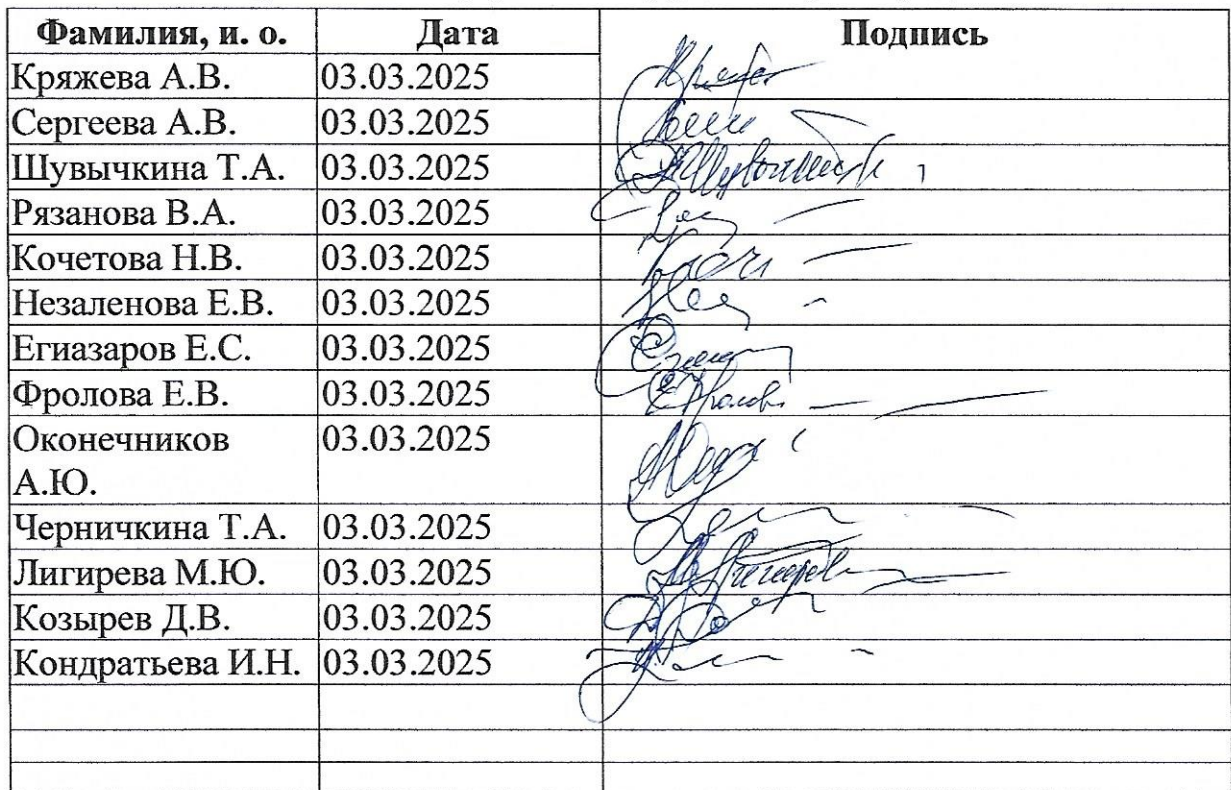 Фамилия, и. о. Дата Подпись
Кряжева А.В. 03.03.2025
Сергеева А.В. 03.03.2025
Шувычкина Т.А. 03.03.2025
Рязанова В.А. 03.03.2025
Кочетова Н.В. 03.03.2025
Незаленова Е.В. 03.03.2025
Егиазаров Е.С. 03.03.2025
Фролова Е.В. 03.03.2025
Оконечников 03.03.2025
А.Ю.
Черничкина Т.А. 03.03.2025
Лигирева М.Ю. 03.03.2025
Козырев Д.В. 03.03.2025
Кондратьева И.Н. 03.03.2025